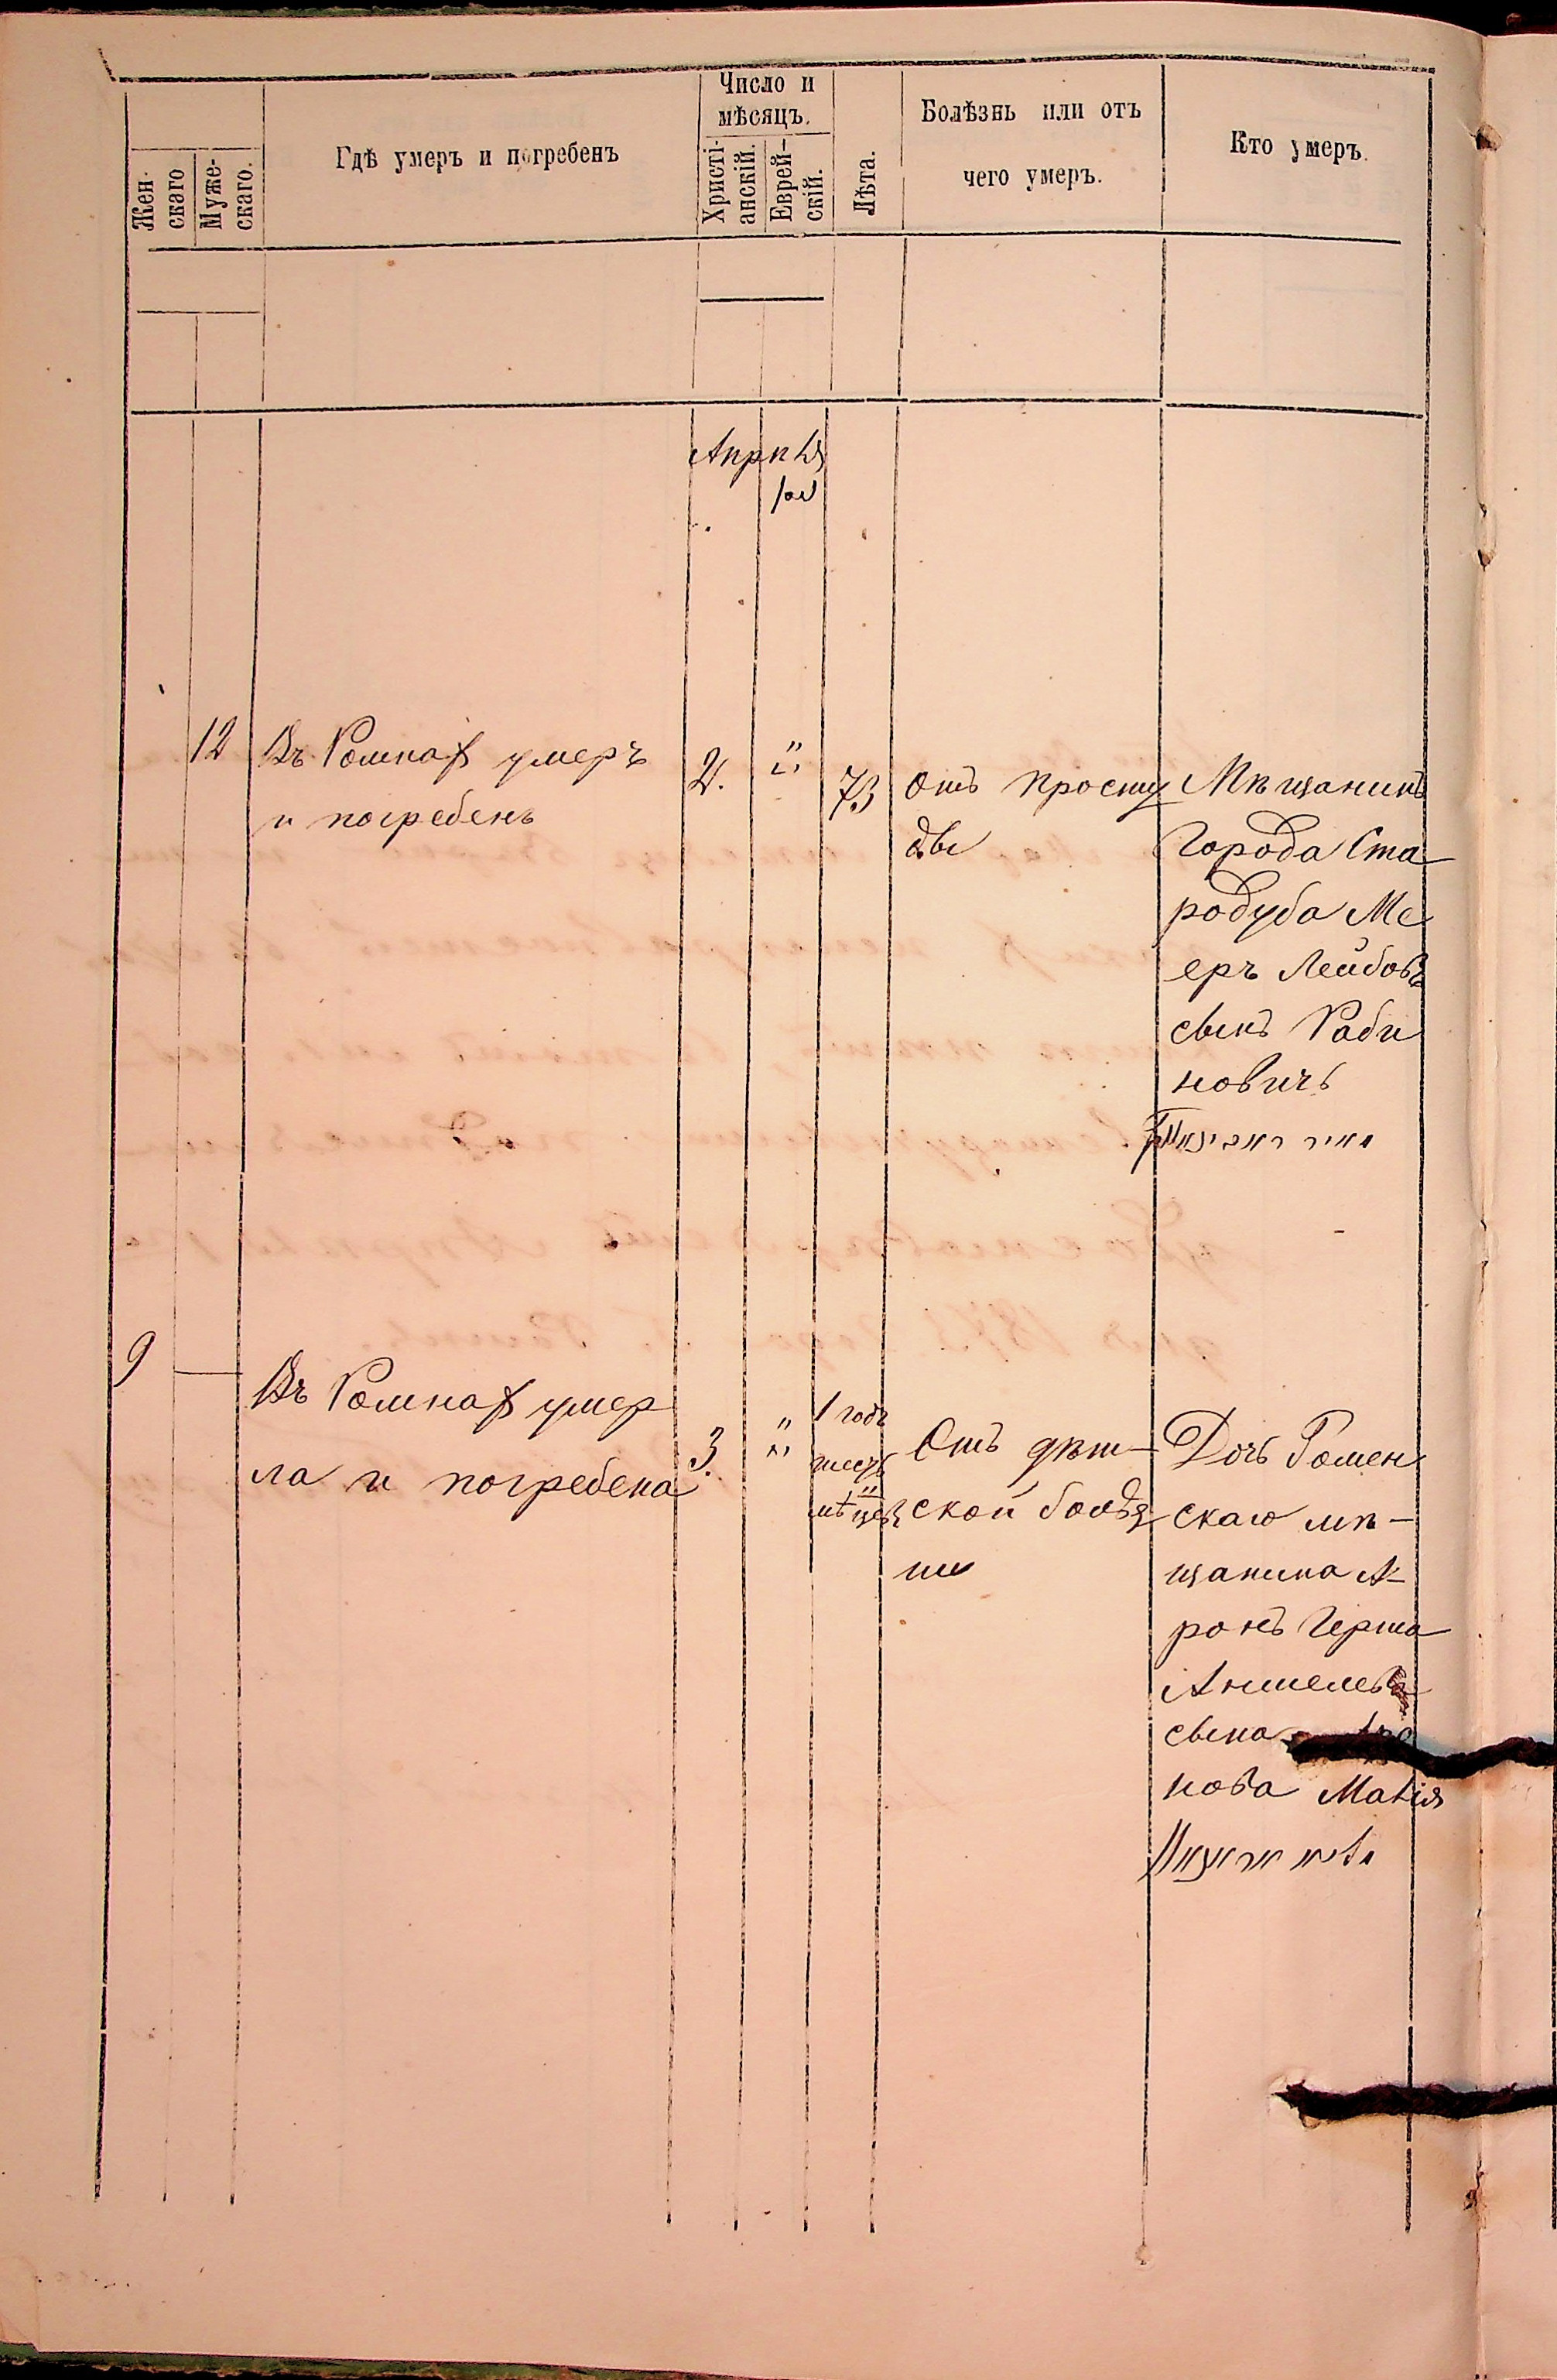 Жен-
скаго
Муже-
скаго.
Гдѣ умеръ и погребенъ
Число и
мѣсяцъ.
Христі-
анскій.
Еврей-
скій.
Лѣта.
Болѣзнь или отъ
чего умеръ.
Кто умеръ.
Апрѣля
ניסן
12
Въ Ромнахъ умеръ
и погребенъ
2.
73
отъ просту
ды
Мѣщанинъ
города Ста
родуба Ме
еръ Лейбовъ
сынъ Раби
новичъ
9
Въ Ромнахъ умер
ла и погребена
3.
1 годъ
шесть
мѣ-цевъ
Отъ дѣт-
ской болѣз
ни
Дочь Ромен
скаго мѣ-
щанина А-
ронъ Герша
Аншелева
сына
нова